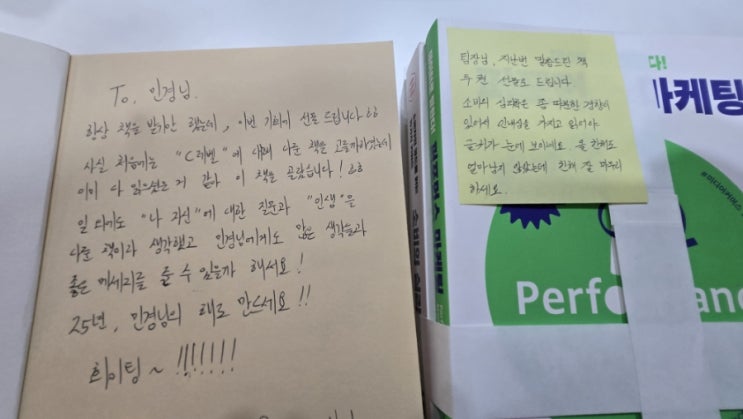 To. 민경님.
항상 책을 받기만 했는데, 이번 기회에 선물 드립니다 ㅎㅎ
사실 처음에는 "C레벨"에 대해 다룬 책을 고를까하였는데
이미 다 읽으셨는 거 같아 이 책을 골랐습니다! ㅎㅎ
일 외에도 "나 자신"에 대한 질문과 "인생"을
다룬 책이라 생각했고 민경님에게도 많은 생각들과
좋은 메세지를 줄 수 있을까 해서요!
25년, 민경님의 해로 만드세요!!
화이팅~ !!!!!!!
팀장님, 지난번 말씀드린 책
두 권 선물로 드립니다.
소비의 심리학은 좀 따분한 경향이
있어서 인내심을 가지고 읽어야
글씨가 눈에 보이네요. 올 한해도
얼마남지 않았는데 한해 잘 마무리
하세요.
다!
마케팅
퍼포먼스 마케팅
소비의 심리
#미디어커머스
Perfo
ance